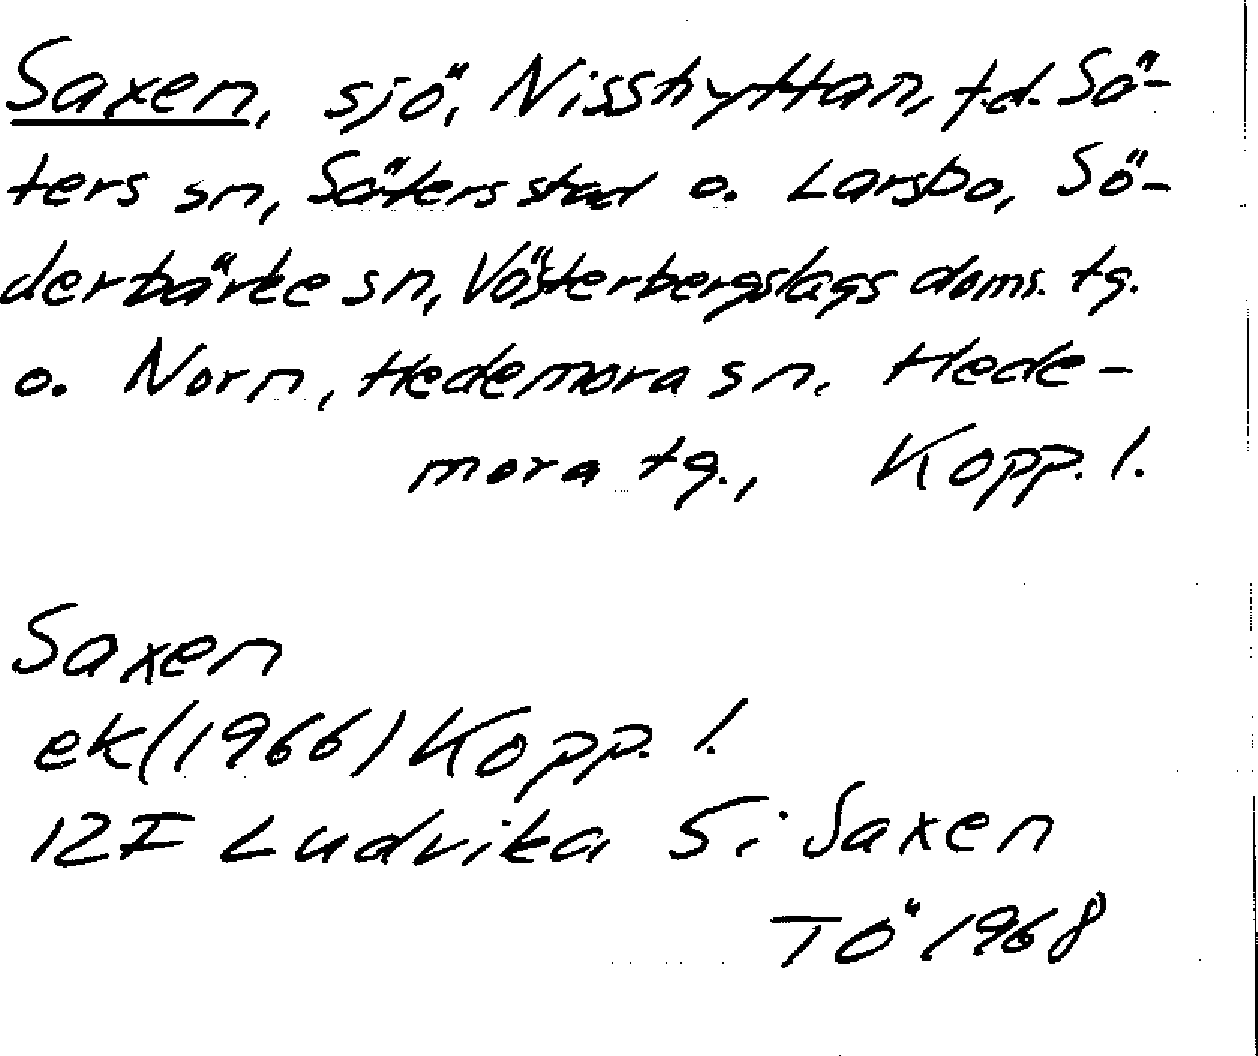 Saxen, sjö, Nisshyttan, f.d. Sä-
ters sn, Säters stad o. Larsbo, Sö-
derbärke sn, Västerbergslags doms. tg.
o. Norn, Hedemora sn, Hede-
mora tg., Kopp. l.
Saxen
ek (1966) Kopp. l.
12F Ludvika S: Saxen
TÖ 1968